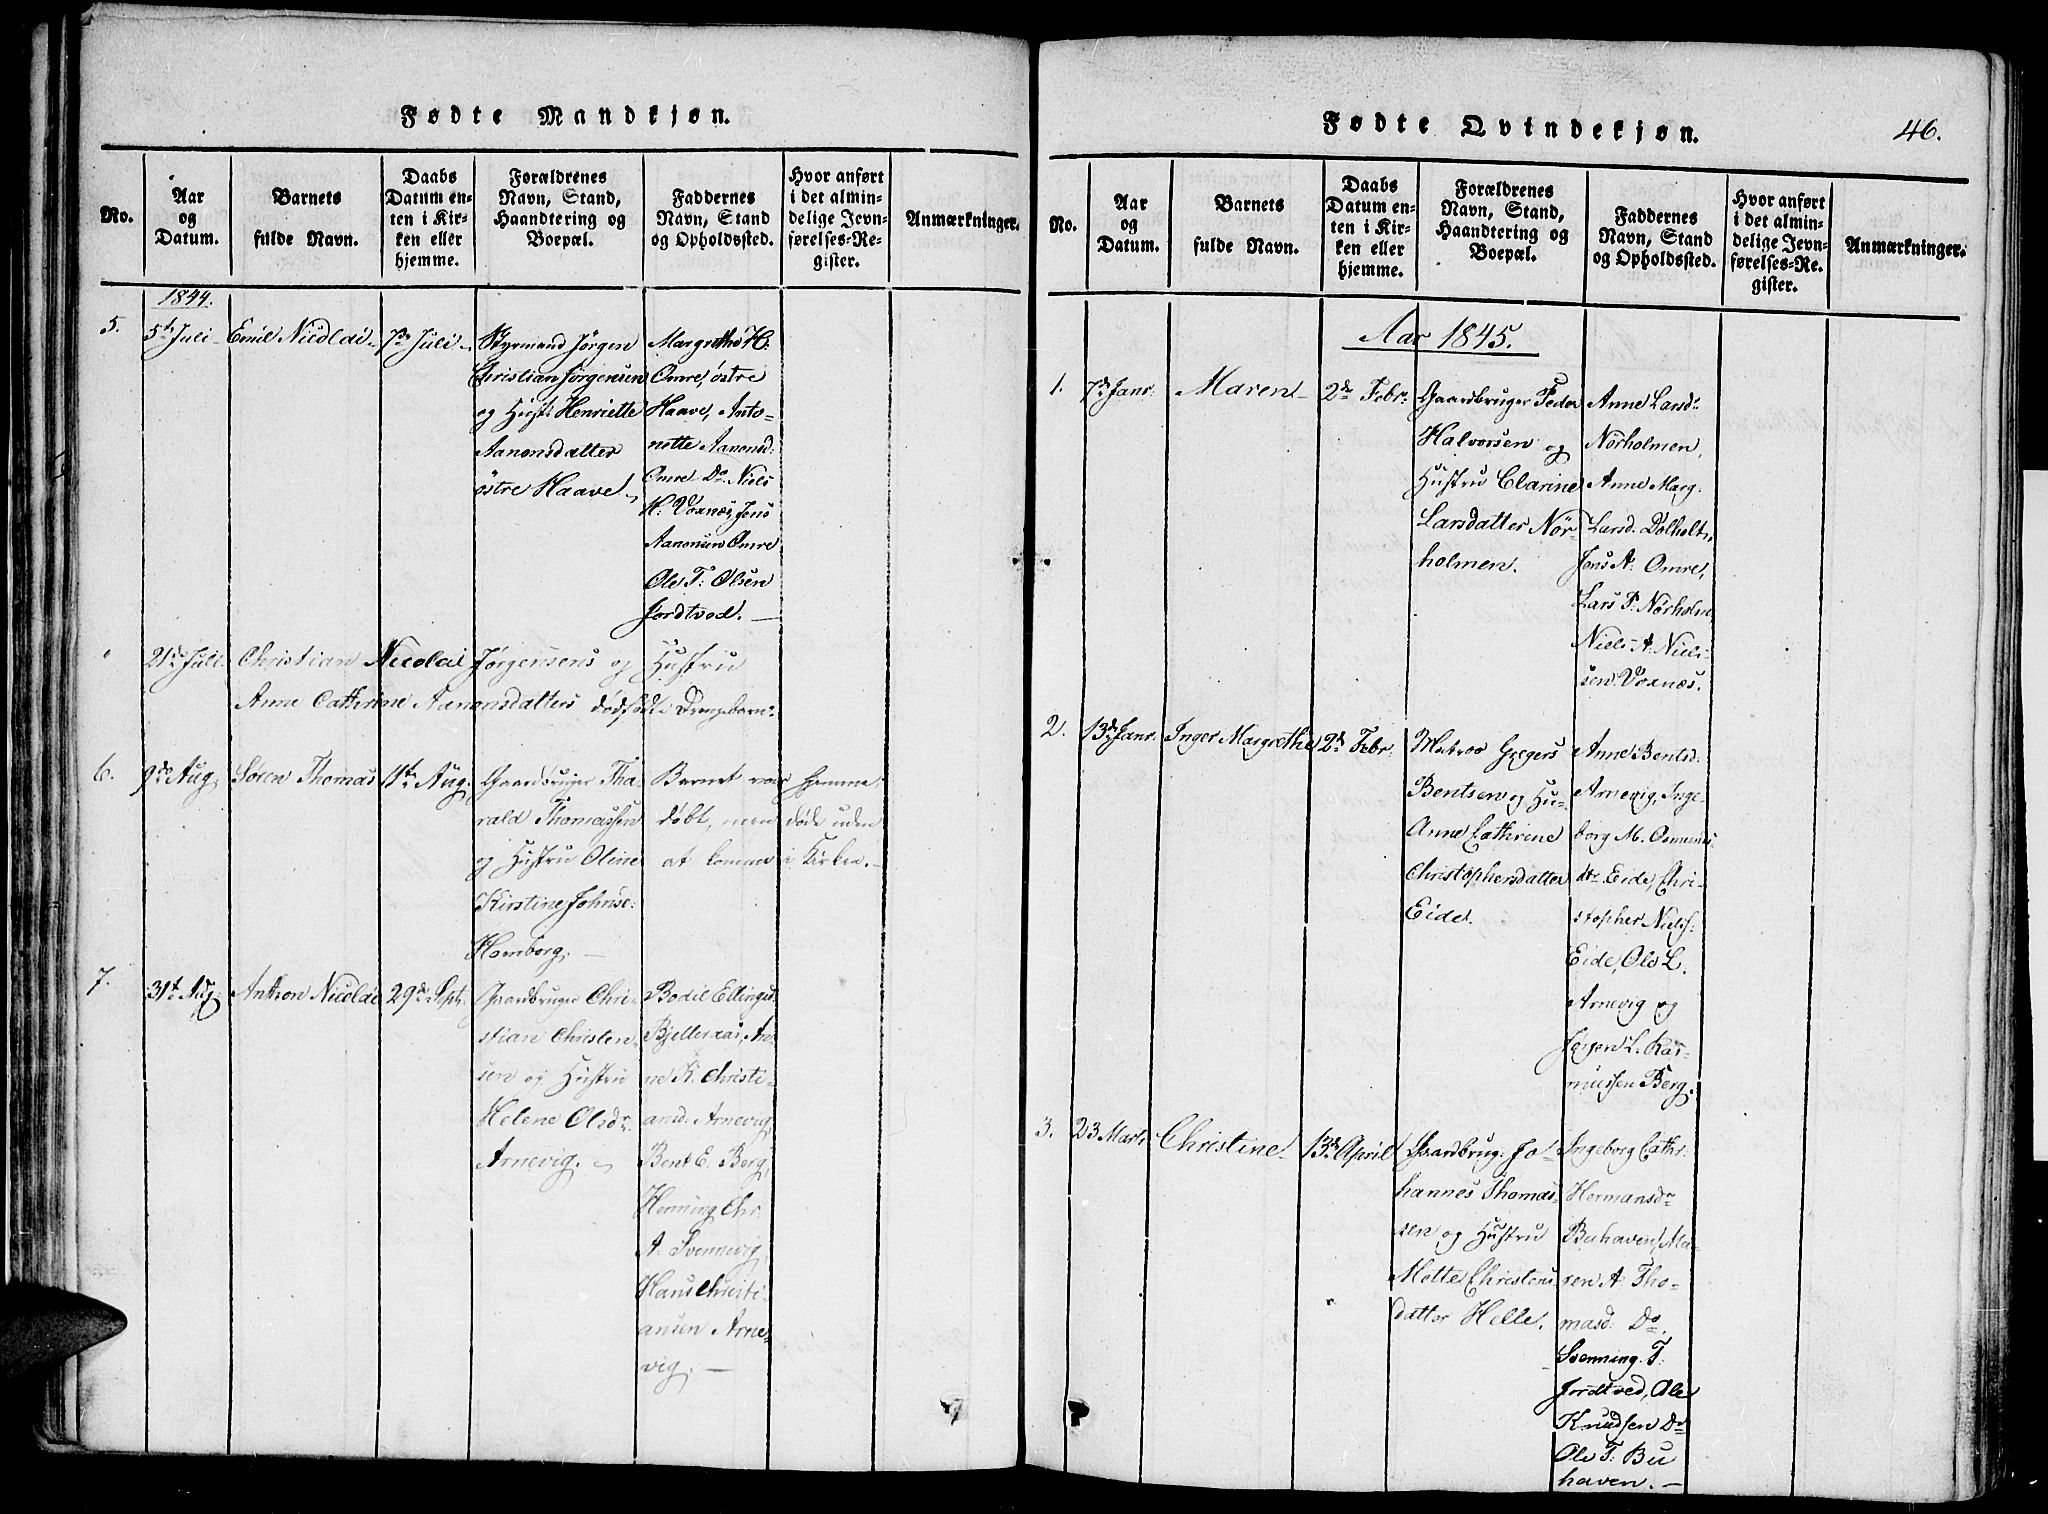 Fødte Mandkjøn.
No.
Aar
og
Datum.
Barnets
fulde Navn.
Daabs
Datum en-
ten i Kir-
ken eller
hjemme.
Forældrenes
Navn, Stand,
Haandtering og
Boepæl.
Faddernes
Navn, Stand
og Opholdssted.
Hvor anført
i det almin-
delige Jevn-
førelses-Re-
gister.
Anmærkninger.
1844.
5.
5te Juli
Emil Nicolai
7de Juli
Styrmand Jörgen
Christian Jörgensen
og Hust: Henriette
Aanonsdatter
östre Haave
Margrethe H:
Omre, östre
Haave, Anto-
nette Aanonsd:
Omre Do. Niels
H. Voxnæs, Jens
Aanonsen Omre
Ole T: Olsen
Jordtved.
"
21de Juli
Christian Nicolai Jørgensens og Hustru
Anne Cathrine Aanonsdatters dødfødte Drengebarn.
6.
9de Aug
Sören Thomas
11te Aug:
Gaardbruger Tha
rald Thomassen
og Hustru Oline
Kirstine Johnsd:
Homborg.
Barnet var hjemme
døbt, men døde uden
at komme i Kirken.
7.
31te Aug:
Anthon Nicolai
29de Sept:
Gaardbruger Chri-
stian Christen-
sen og Hustru
Helene Olsdr
Arnevig.
Bodil Ellingsd.
Bjelleraas, An-
ne K. Christi-
ansd: Arnevig,
Bent E. Berg,
Henning Chr.
A. Svennevig,
Hans Christi-
ansen Arne-
vig.
Fødte Qvindekjøn.
46.
No.
Aar
og
Datum.
Barnets
fulde Navn.
Daabs
Datum en-
ten i Kir-
ken eller
hjemme.
Forældrenes
Navn, Stand,
Haandtering og
Boepæl.
Faddernes
Navn, Stand
og Opholdssted.
Hvor anført
i det almin-
delige Jevn-
førelses-Re-
gister.
Anmærkninger.
Aar 1845.
1.
7de Janr:
Maren
2de Febr:
Gaardbruger Peder
Halvorsen og
Hustru Clarine
Larsdatter Nör-
holmen.
Anne Larsdr
Nörholmen,
Anne Marg.
Larsd. Dolholt,
Jens A: Omre,
Lars P. Nörholm
Niels A. Niel-
sen Voxnæs.
2.
13de Janr.
Inger Margrethe
2de Febr.
Matros Gregers
Bentsen og Hu-
Anne Cathrine
Christophersdatter
Eide.
Anne Bentsd.
Arnevig, Inge-
borg M. Osmunds
dtr Eide, Chri-
stopher Nielss:
Eide, Ole L.
Arnevig og
Jörgen L. Ras-
mussen Berg.
3.
23 Marts
Christine
13de April
Gaardbrug: Jo-
hannes Thomas-
sen og Hustru
Mette Christens
datter Helle.
Ingeborg Cathr.
Hermansdr
Buhaven, Ma-
ren A Tho-
masd: Do,
Svenning T:
Jordtved, Ole
Knudsen Do
Ole T: Bu
haven.